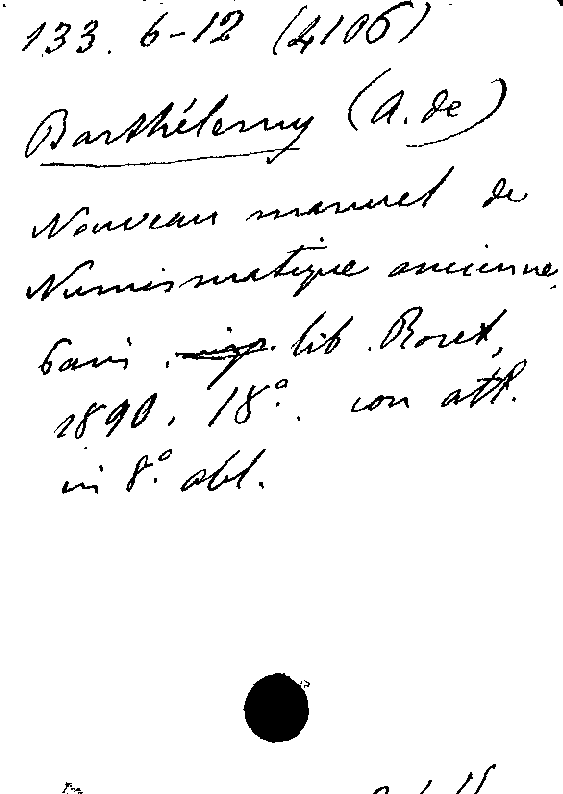 133. 6-12 (4106)
Barthélemy (A. de)
Nouveau manuel de
Numismatique ancienne.
Paris. imp. lib. Roret,
1890. 18°. con atl.
in 8° obl.